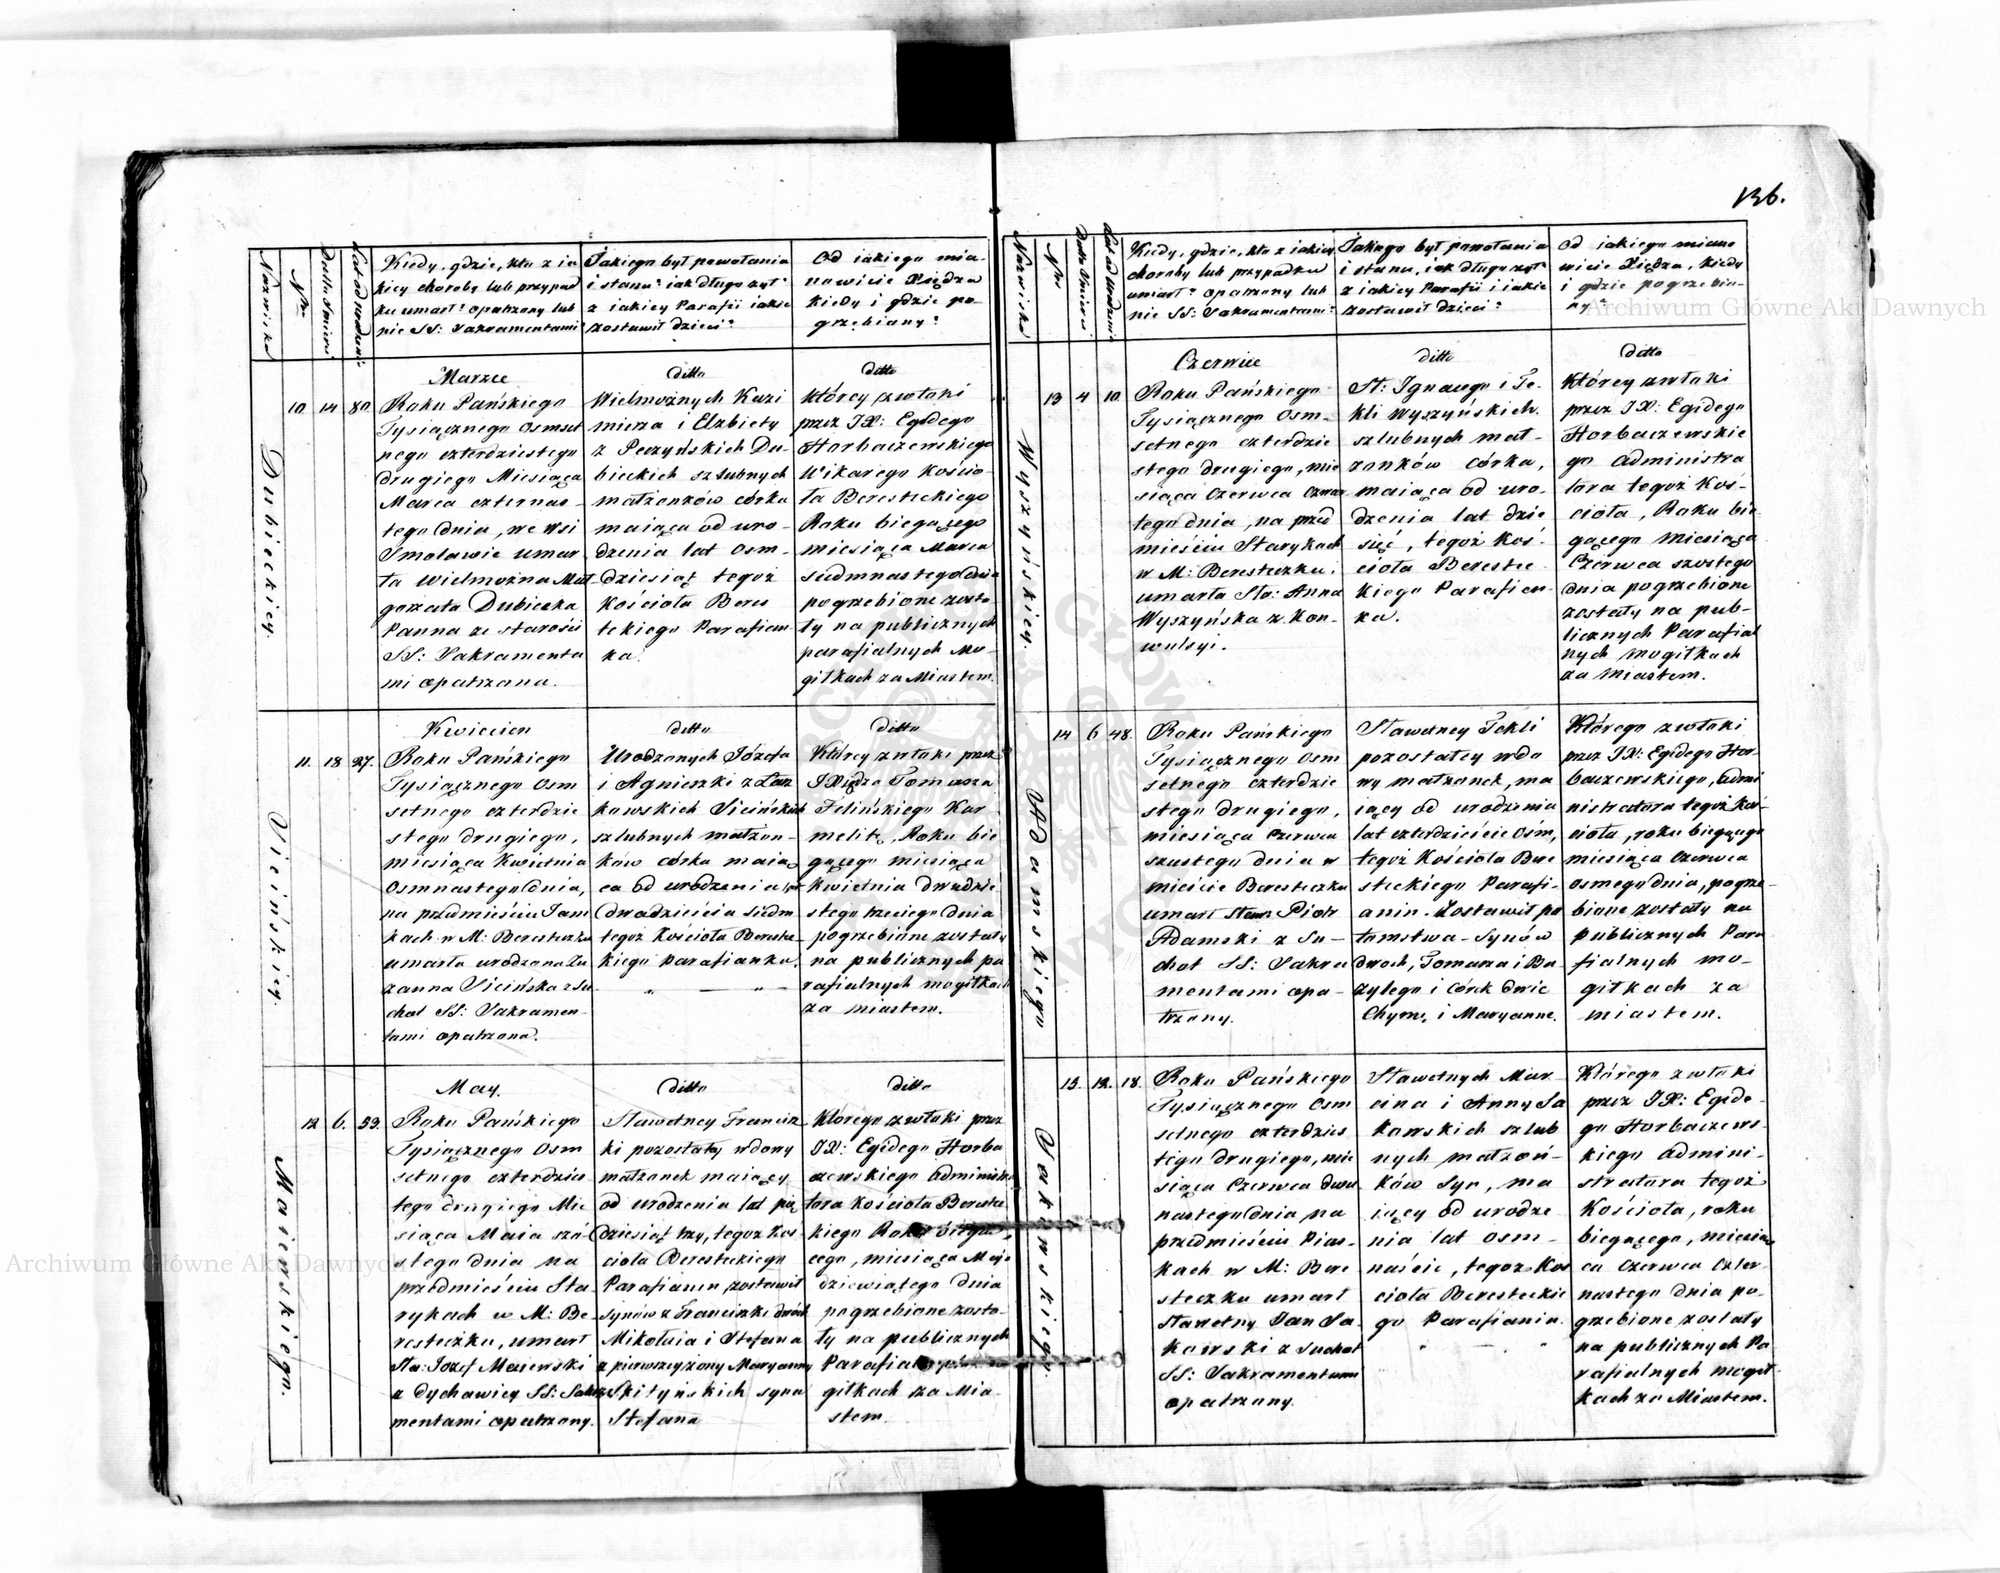 136.
Nazwiska
Nro
Data Śmierci
Lat od urodzenia
Kiedy, gdzie, kto z ia
kiey choroby lub przypad
ku umarł? opatrzony lub
nie SS: Sakramentami?
Jakiego był powołania
i stanu? iak długo żył?
z iakiey Parafii iakie
zostawił dzieci?
Od iakiego mia-
nowicie Xiędza
kiedy i gdzie po-
grzebiany?
Dubieckiey.
10. 14 80.
Marzec
Roku Pańskiego
Tysiącznego Osmset
nego czterdziestego
drugiego Miesiąca
Marca czternas-
tego dnia, we wsi
Smolawie umar
ła Wielmożna Mał
gorzata Dubiecka
Panna ze starości
SS: Sakramenta
mi opatrzona.
ditto
Wielmożnych Kazi
mierza i Elżbiety
z Peczyńskich Du-
bieckich szlubnych
małżonków córka
maiąca od uro-
dzenia lat Osm-
dziesiąt tegoż
Kościoła Beres
teckiego Parafian-
ka.
ditto
Którey zwłoki
przez JX: Egidego
Horbaczewskiego
Wikarego Kościo-
ła Beresteckiego
Roku biegącego
miesiąca Marca
siedmnastego dnia
pogrzebione zosta
ły na publicznych
parafialnych Mo-
giłkach za Miastem.
Sicińskiey.
11. 18 27.
Kwiecien
Roku Pańskiego
Tysiącznego Osm
setnego czterdzie
stego drugiego,
miesiąca Kwietnia
Osmnastego dnia,
na przedmieściu Jam
kach w M: Beresteczku
umarła urodzona Zu
zanna Sicińska z Su
chot SS: Sakramen-
tami opatrzona.
ditto
Urodzonych Józefa
i Agnieszki z
kowskich Sicińskich
szlubnych małżon-
ków córka maią
ca od urodzenia lat
Dwadzieścia siedm
tegoż Kościoła Bereste-
kiego parafianka.
„ — „
ditto
Którey zwłoki przez
JXiędza Tomasza
Felińskiego Kar-
melitę, Roku bie
gącego miesiąca
Kwietnia dwudzie
stego trzeciego dnia
pogrzebione zostały
na publicznych pa
rafialnych mogiłkach
za miastem.
Maiewskiego.
12 6. 53.
May.
Roku Pańskiego
Tysiącznego Osm
setnego czterdzies
tego drugiego Mie
siąca Maia szó-
stego dnia na
przedmieściu Sta-
rykach w M: Be-
resteczku, umarł
Sła: Jozef Maiewski
z Dychawicy SS: Sakra
mentami opatrzony.
ditto
Sławetney Francisz
ki pozostałey wdowy
małżonek maiący
od urodzenia lat pię
dziesiąt trzy, tegoż Koś
cioła Beresteckiego
Parafianin, zostawił
synów z Franciszki dwóch
Mikołaia i Stefana
z pierwszey żony Maryanny
z Skityńskich syna
Stefana
ditto
Którego zwłoki przez
JX: Egidego Horba
czewskiego administra
tora Kościoła Berestec
kiego Roku biegą-
cego, miesiąca Maja
dziewiątego dnia
pogrzebione zosta-
ły na publicznych
Parafialnych mo
giłkach za Mia-
stem.
Nazwiska
Nro
Data Śmierci
Lat od urodzenia
Kiedy, gdzie, kto z iakiey
choroby lub przypadku
umarł? opatrzony lub
nie SS: Sakramentami?
Jakiego był powołania
i stanu, iak długo żył?
z iakiey Parafii i iakie
zostawił dzieci?
Od iakiego miano
wicie Xiędza, kiedy
i gdzie pogrzebio-
ny?
Wyszyńskiey.
13 4 10
Czerwiec
Roku Pańskiego
Tysiącznego Osm-
setnego czterdzie
stego drugiego, mie
siąca Czerwca Czwar
tego dnia, na przed
mieściu Starykach
w M: Beresteczku.
umarła Sła: Anna
Wyszyńska z Kon-
wulsyi.
ditto
Sł: Ignacego i Te-
kli Wyszyńskich.
szlubnych mał-
żonków córka,
maiąca od uro-
dzenia lat dzie
sięć, tegoż Koś-
cioła Berestec-
kiego Parafian-
ka.
ditto
Którey zwłoki
przez JX: Egidego
Horbaczewskie
go administra
tora tegoż Koś-
cioła, Roku bie-
gącego Miesiąca
Czerwca szostego
dnia pogrzebione
zostały na pub-
licznych Parafial
nych mogiłkach
za Miastem.
Adamskiego
14 6 48.
Roku Pańskiego
Tysiącznego Osm
setnego czterdzie
stego drugiego,
miesiąca Czerwca
szustego dnia w
mieście Beresteczku
umarł Sławe: Piotr
Adamski z Su-
chot SS: Sakra
mentami opa-
trzony.
Sławetney Tekli
pozostałey wdo
wy małżonek, ma
iący od urodzenia
lat czterdzieście Ośm,
tegoż Kościoła Bere
steckiego Parafi-
anin. Zostawił po
tomstwa - synów
dwoch, Tomasza i Ba
zylego i córek dwie
Chymę i Maryannę.
Którego zwłoki
przez JX: Egidego Hor-
baczewskiego, admi
nistratora tegoż Koś-
cioła, roku biegącego
miesiąca Czerwca
osmego dnia, pogrze-
bione zostały na
publicznych Para
fialnych mo-
giłkach za
miastem.
Sakowskiego.
15. 12. 18.
Roku Pańskiego
Tysiącznego Osm
setnego czterdzies
tego drugiego, mie
siąca Czerwca dwu
nastego dnia, na
przedmieściu Pias-
kach w M: Bere
steczku umarł
Sławetny Jan Sa-
kowski z Suchot
SS: Sakramentami
opatrzony.
Sławetnych Mar
cina i Anny Sa
kowskich szlub
nych małżon-
ków syn, ma
iący od urodze
nia lat osm-
naście, tegoż Koś
cioła Beresteckie
go Parafianin.
„ — „
Którego zwłoki
przez JX: Egide-
go Horbaczews-
kiego admini-
stratora tegoż
Kościoła, roku
biegącego, miesią
ca Czerwca Czter-
nastego dnia po-
grzebione zostały
na publicznych Pa
rafialnych mogił-
kach za Miastem.
Archiwum Główne Akt Dawnych
Archiwum Główne Akt Dawnych